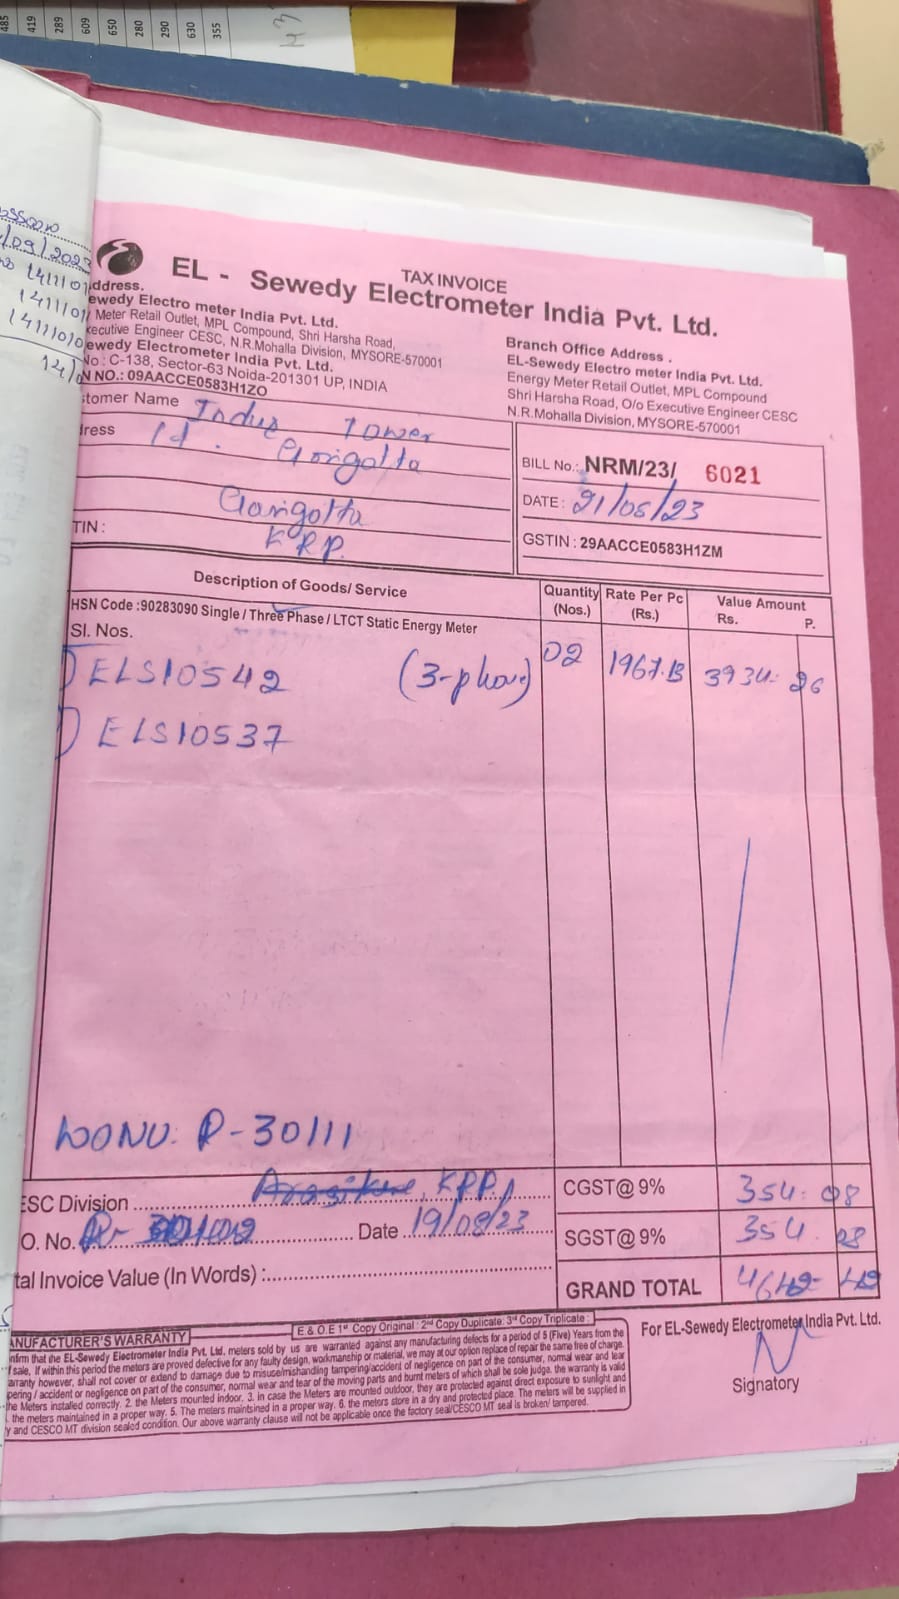 485
419
289
609
650
280
290
630
355
TAX INVOICE
EL - Sewedy Electrometer India Pvt. Ltd.
ddress.
ewedy Electro meter India Pvt. Ltd.
Meter Retail Outlet, MPL Compound, Shri Harsha Road,
xecutive Engineer CESC, N.R.Mohalla Division, MYSORE-570001
ewedy Electrometer India Pvt. Ltd.
No : C-138, Sector-63 Noida-201301 UP, INDIA
N NO.: 09AACCE0583H1ZO
Branch Office Address .
EL-Sewedy Electro meter India Pvt. Ltd.
Energy Meter Retail Outlet, MPL Compound
Shri Harsha Road, O/o Executive Engineer CESC
N.R.Mohalla Division, MYSORE-570001
stomer Name Indus Tower
ress
TIN :
KRP.
BILL No.: NRM/23/ 6021
DATE : 21/08/23
GSTIN : 29AACCE0583H1ZM
Description of Goods/ Service Quantity (Nos.) Rate Per Pc (Rs.) Value Amount Rs. P.
HSN Code :90283090 Single / Three Phase / LTCT Static Energy Meter
Sl. Nos.
ELS10542 (3-phase) 02 1967.13 3934. 26
ELS10537
WONU: R-30111
ESC Division KRP,
O. No. Date 19/08/23
tal Invoice Value (In Words) :
CGST@ 9% 354. 08
SGST@ 9% 354. 08
GRAND TOTAL 4642- 42
E.& O.E 1st Copy Original : 2nd Copy Duplicate: 3rd Copy Triplicate :
ANUFACTURER'S WARRANTY
nfirm that the EL-Sewedy Electrometer India Pvt. Ltd. meters sold by us are warranted against any manufacturing defects for a period of 5 (Five) Years from the
f sale, If within this period the meters are proved defective for any faulty design, workmanship or material, we may at our option replace of repair the same free of charge.
arranty however, shall not cover or extend to damage due to misuse/mishandling tampering/accident of negligence on part of the consumer, normal wear and tear
pering / accident or negligence on part of the consumer, normal wear and tear of the moving parts and burnt meters of which shall be sole judge. the warranty is valid
he Meters installed correctly. 2. the Meters mounted indoor. 3. in case the Meters are mounted outdoor, they are protected against direct exposure to sunlight and
. the meters maintained in a proper way. 5. The meters maintsined in a proper way. 6. the meters store in a dry and protected place. The meters will be supplied in
y and CESCO MT division sealed condition. Our above warranty clause will not be applicable once the factory seal/CESCO MT seal is broken/ tampered.
For EL-Sewedy Electrometer India Pvt. Ltd.
Signatory